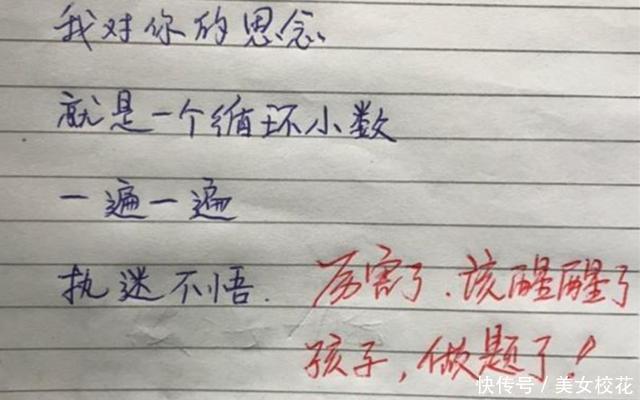 我对你的思念
就是一个循环小数
一遍一遍
执迷不悟.
厉害了.该醒醒了
孩子,做题了!
快传号/美女校花